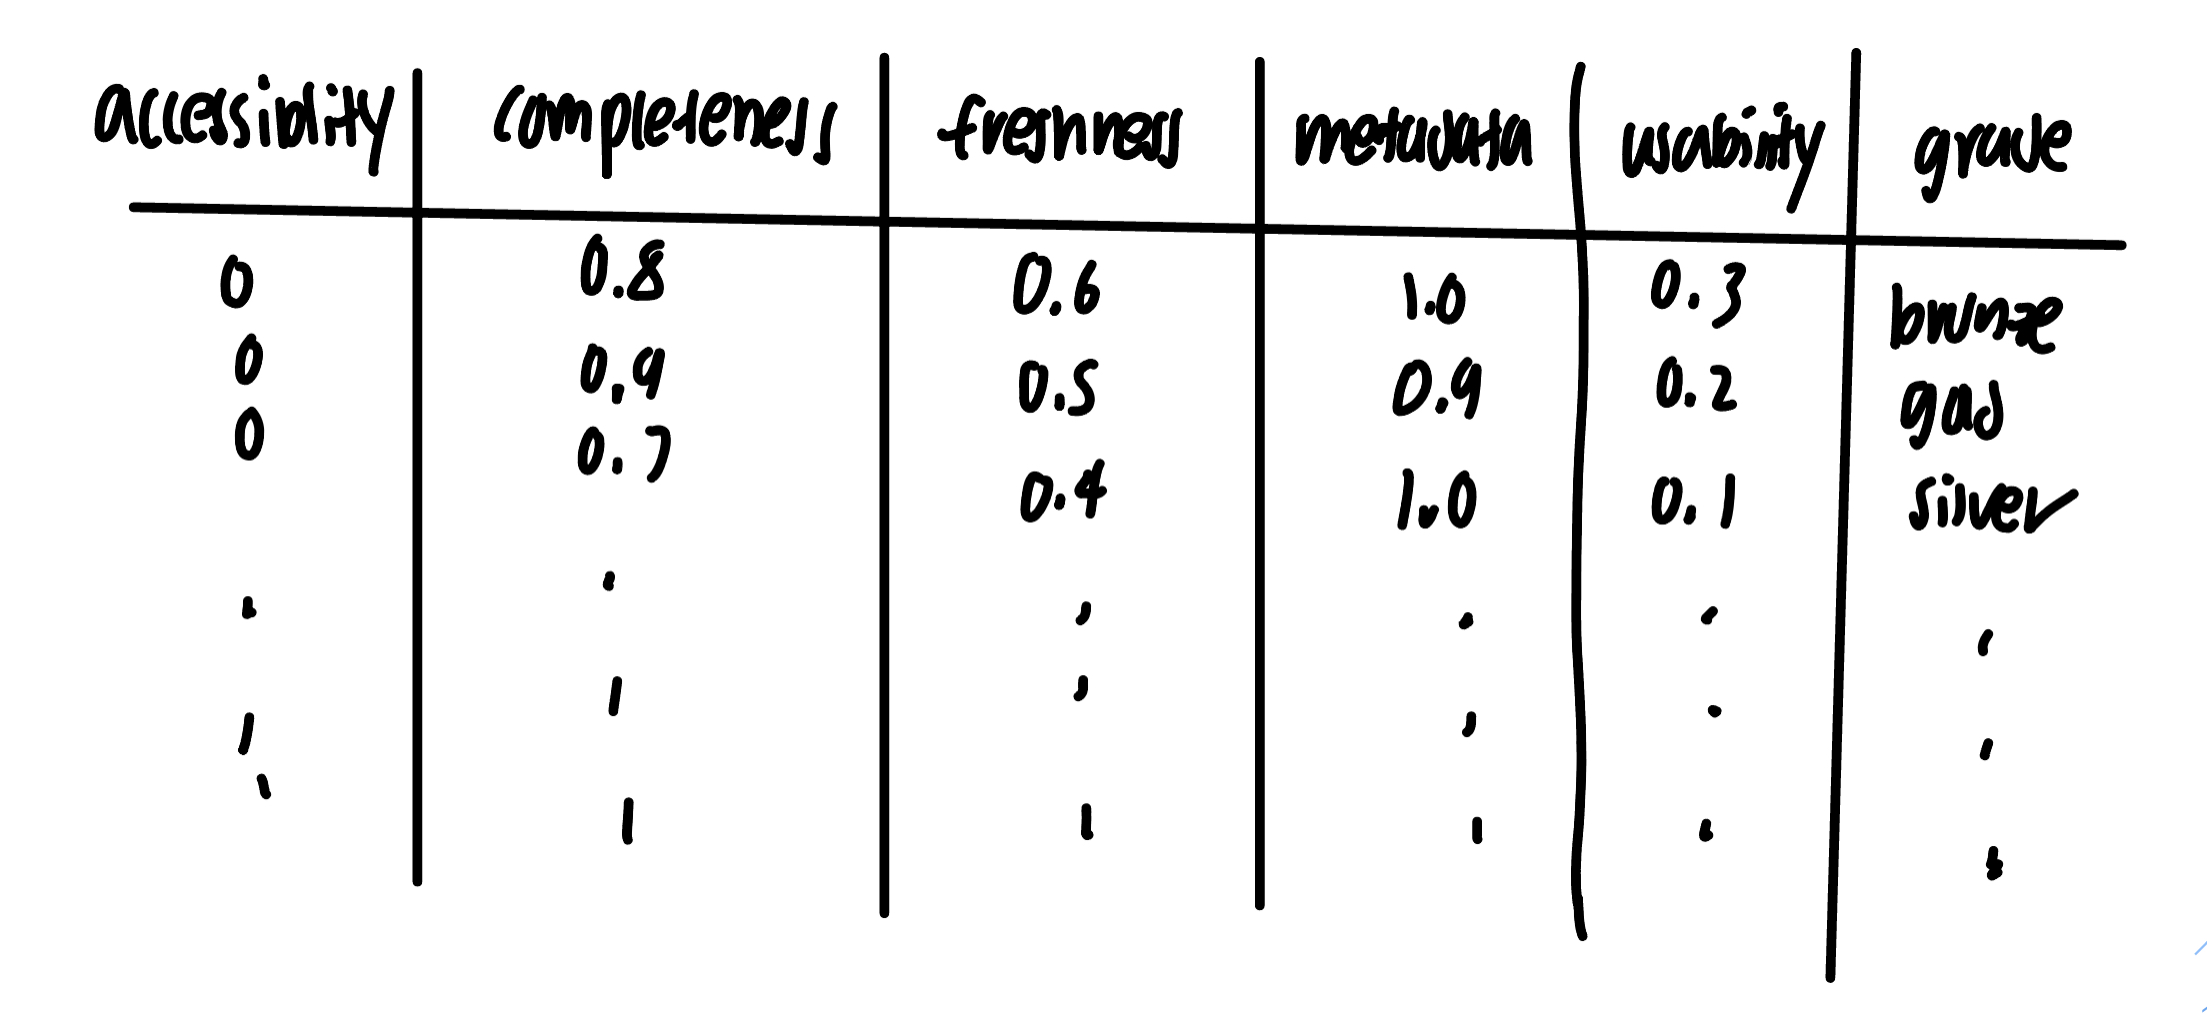 accessiblity completeness freshness metadata usability grade
0 0.8 0.6 1.0 0.3 bronze
0 0.9 0.5 0.9 0.2 gad
0 0.7 0.4 1.0 0.1 silver